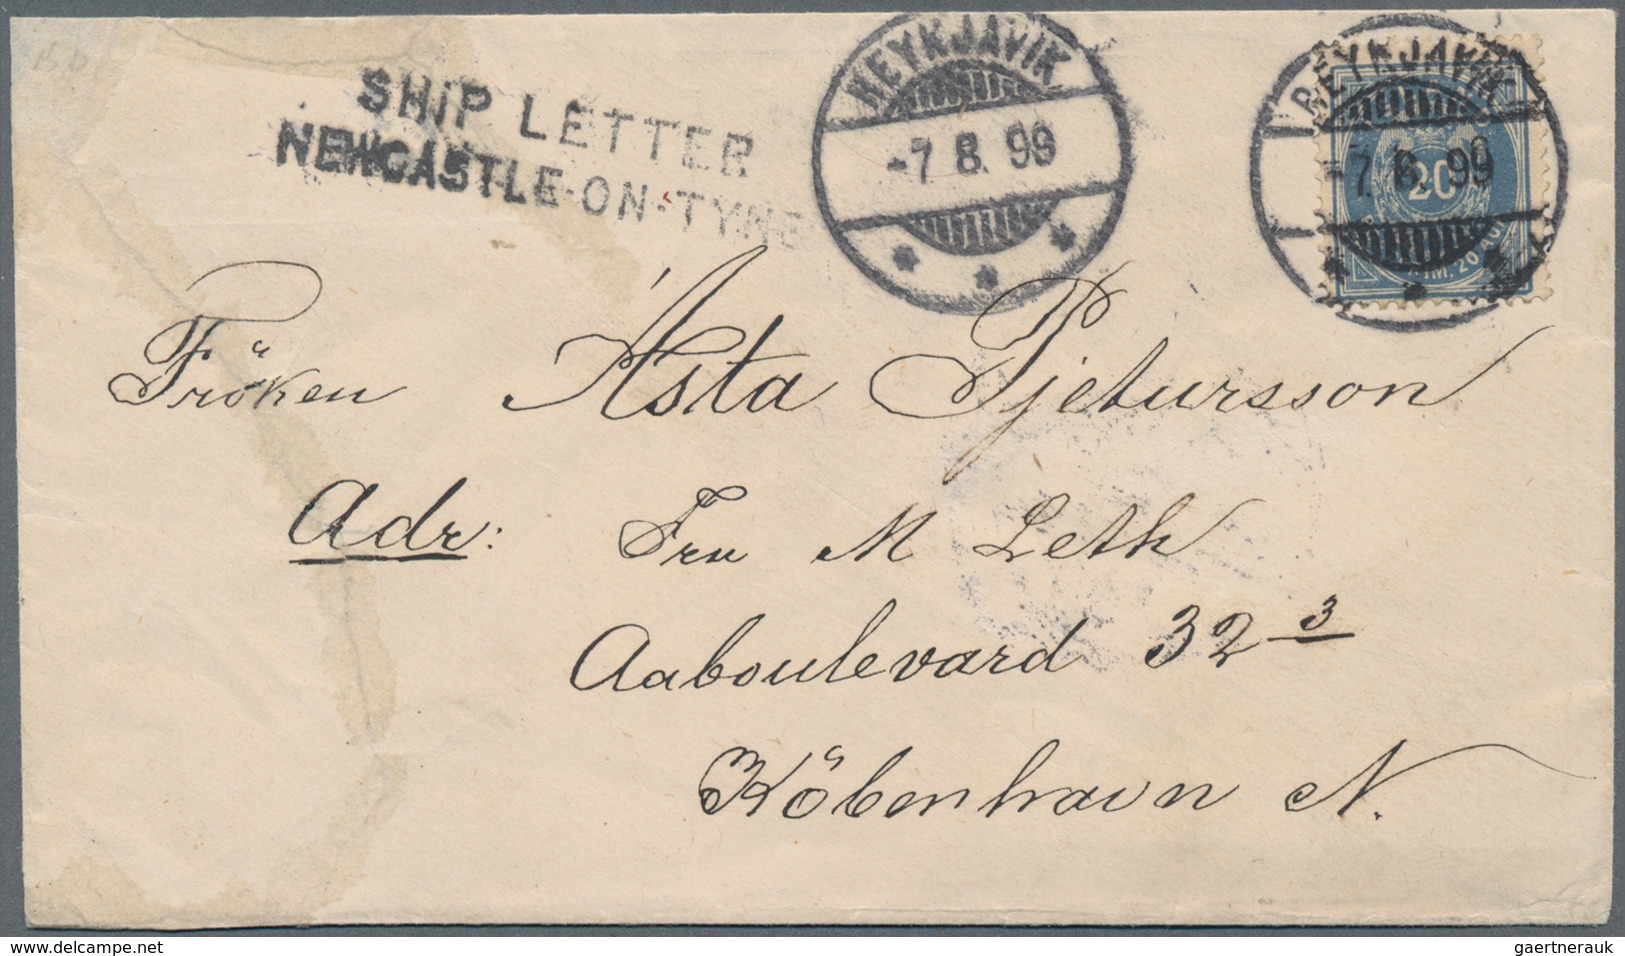 SHIP LETTER
NEWCASTLE-ON-TYNE
REYKJAVIK
-7. 8. 99
REYKJAVIK
-7. 8. 99
20
Fröken Ásta Pjetursson
Adr: Fru M Leth
Aaboulevard 32 3
Köbenhavn N.
www.delcampe.net
gaertnerauk